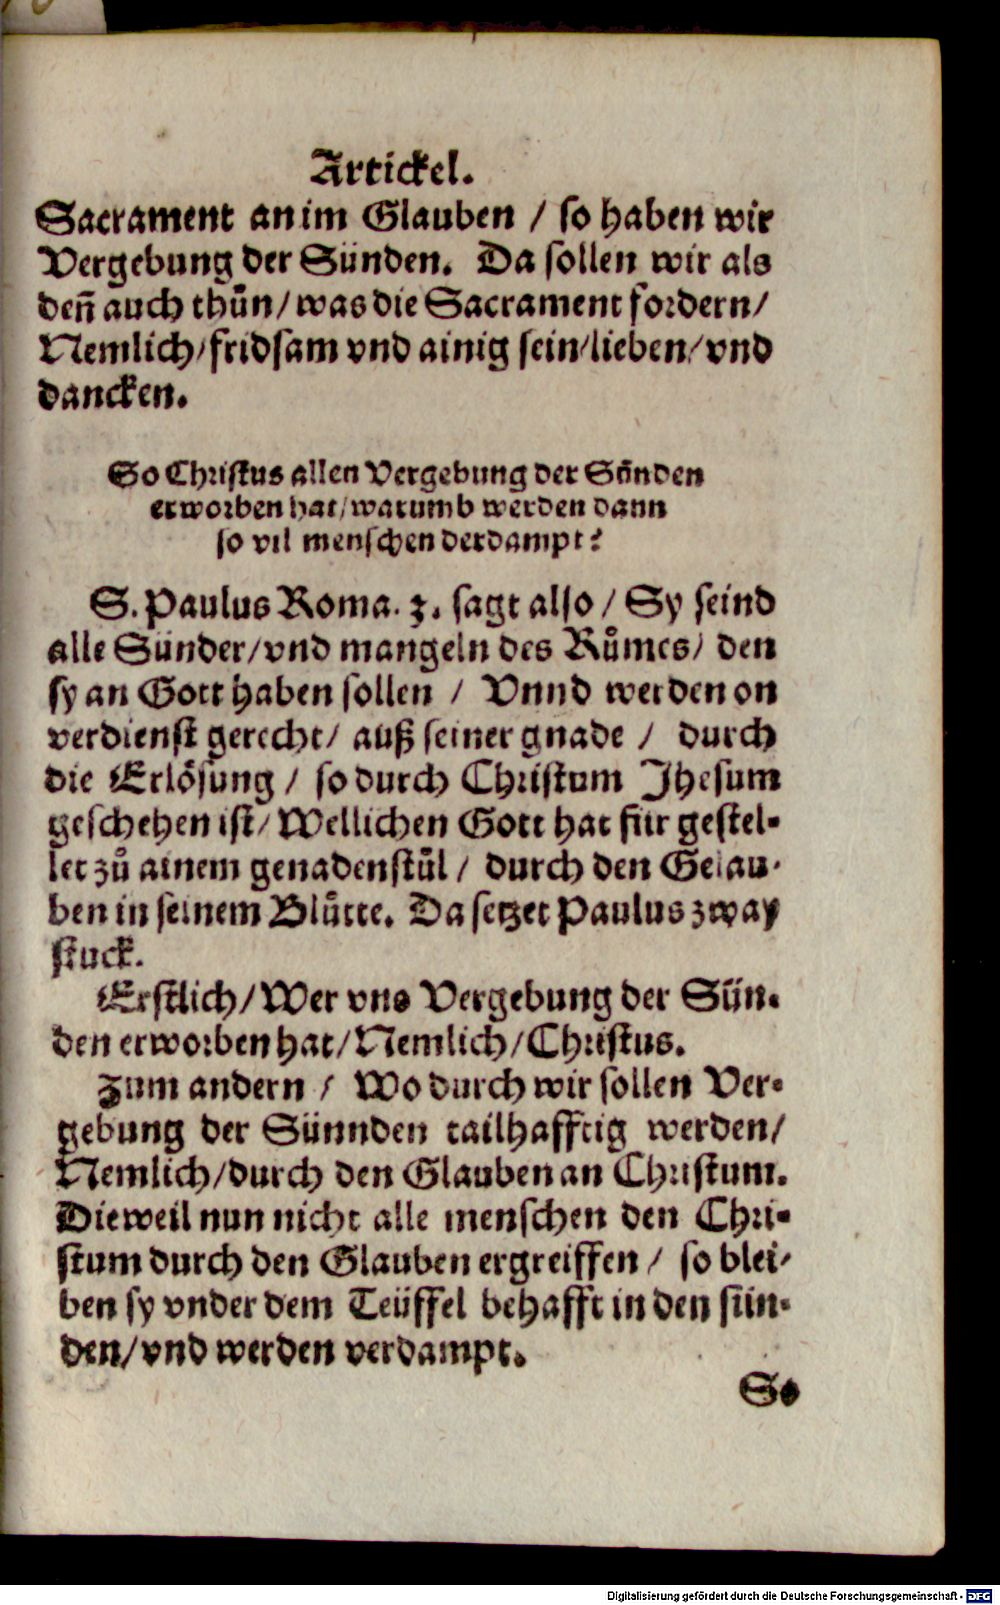 Artickel.
Sacrament an im Glauben / so haben wir
Vergebung der Sünden. Da sollen wir als
deñ auch thůn / was die Sacrament fordern /
Nemlich / fridsam vnd ainig sein / lieben / vnd
dancken.
So Christus allen Vergebung der Sünden
erworben hat / warumb werden dann
so vil menschen verdampt?
S. Paulus Roma. 3. sagt also / Sy seind
alle Sünder / vnd mangeln des Růmes / den
sy an Gott haben sollen / Vnnd werden on
verdienst gerecht / auß seiner gnade / durch
die Erlösung / so durch Christum Jhesum
geschehen ist / Wellichen Gott hat für gestel-
let zů ainem genadenstůl / durch den Gelau-
ben in seinem Blůtte. Da setzet Paulus zway
stuck.
Erstlich / Wer vns Vergebung der Sün-
den erworben hat / Nemlich / Christus.
Zum andern / Wo durch wir sollen Ver-
gebung der Sünnden tailhafftig werden /
Nemlich / durch den Glauben an Christum.
Dieweil nun nicht alle menschen den Chri-
stum durch den Glauben ergreiffen / so blei-
ben sy vnder dem Teüffel behafft in den sün-
den / vnd werden verdampt.
So
Digitalisierung gefördert durch die Deutsche Forschungsgemeinschaft - DFG